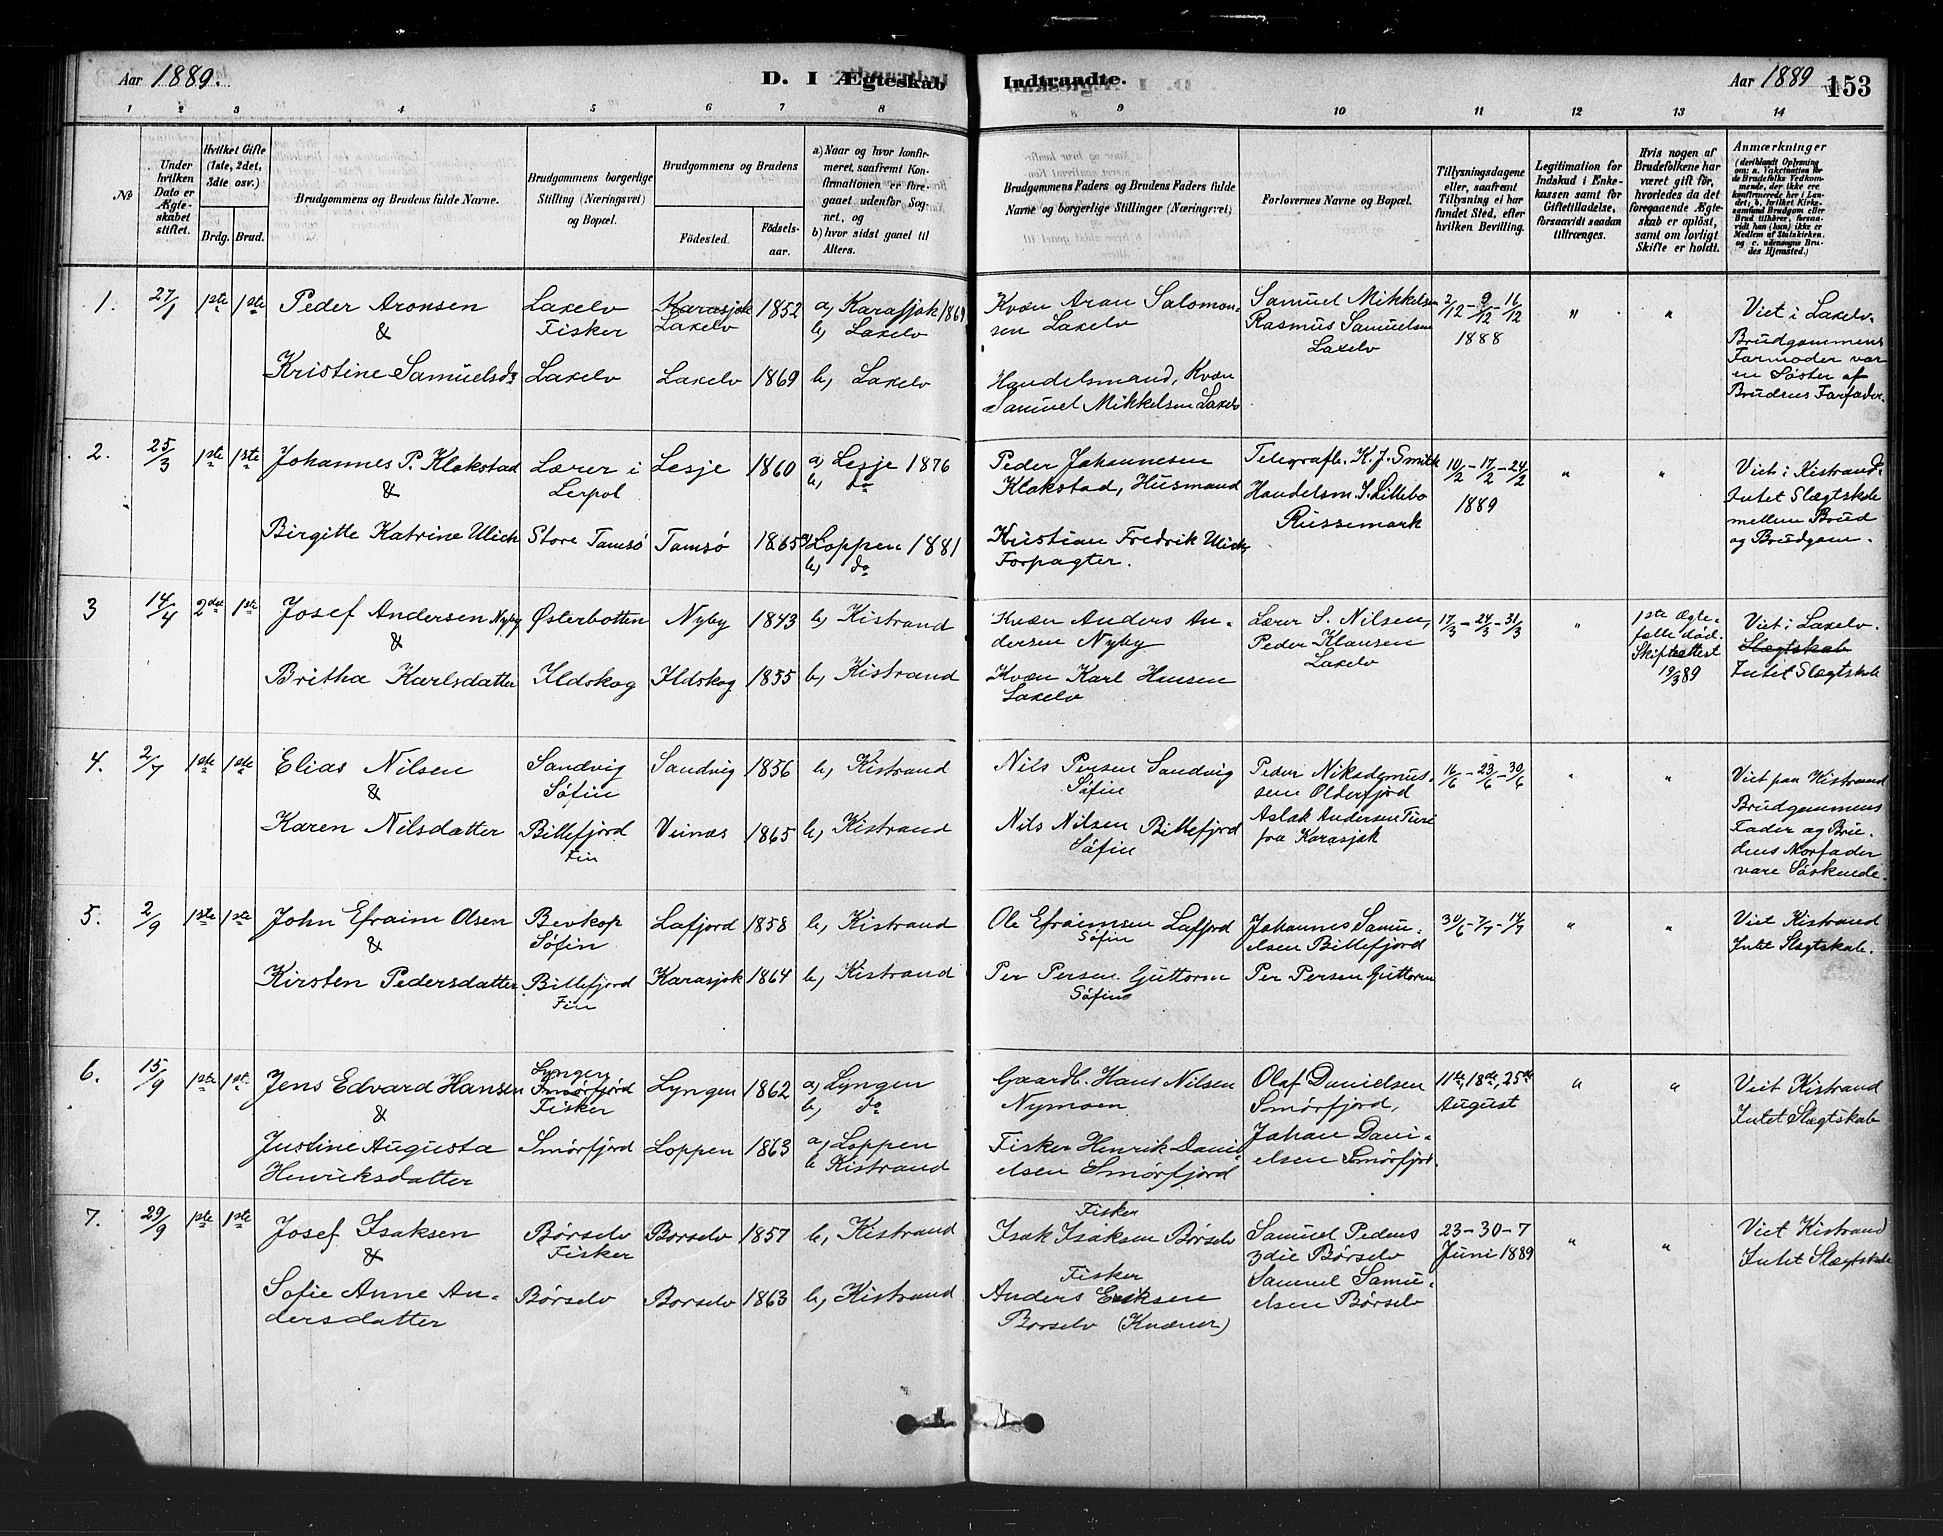 Aar 1889.
D. I Ægteskab
Indtraadte.
Aar 1889
153
1 2 3 4 5 6 7 8
9 10 11 12 13 14
№
Under hvilken Dato er Ægteskabet stiftet.
Hvilket Gifte (1ste, 2det, 3die osv.)
Brdg. Brud.
Brudgommens og Brudens fulde Navne.
Brudgommens borgerlige Stilling (Næringsvei) og Bopæl.
Brudgommens og Brudens
Födested.
Födselsaar.
a) Naar og hvor konfirmeret, saafremt Konfirmationen er foregaaet udenfor Sognet, og
b) hvor sidst gaaet til Alters.
Brudgommens Faders og Brudens Faders fulde Navne og borgerlige Stillinger (Næringsvei)
Forlovernes Navne og Bopæl.
Tillysningsdagene eller, saafremt Tillysning ei har fundet Sted, efter hvilken Bevilling.
Legitimation for Indskud i Enkekassen samt for Giftetilladelse, forsaavidt saadan tiltrænges.
Hvis nogen af Brudefolkene har været gift för, hvorledes da det foregaaende Ægteskab er oplöst, samt om lovligt Skifte er holdt.
Anmærkninger
(deriblandt Oplysning om: a. Vakcination for de Brudefolks Vedkommende, der ikke ere konfirmerede her i Landet; b. hvilket Kirkesamfund Brudgom eller Brud tilhörer, forsaavidt han (hun) ikke er Medlem af Statskirken, og c. udensogns Brudes Hjemsted.)
1. 27/1 1ste 1ste
Peder Aronsen
&
Kristine Samuelsdr
Laxelv
Fisker
Laxelv
Karasjok
Laxelv
Laxelv
1852
1869
a) Karasjok
b) Laxelv
b) Laxelv
Kvæn Aron Salomon-
sen Laxelv
Handelsmand, Kvæn
Samuel Mikkelsen Laxelv
Samuel Mikkelsen
Rasmus Samuelsen
Laxelv
2/12 - 9/12 - 16/12
1888
"
"
Viet i Laxelv.
Brudgommens
Farmoder var
en Søster af
Brudens Farfader.
2. 25/3 1ste 1ste
Johannes P. Klokstad
&
Birgitte Katrine Ulich
Lærer i
Lerpol
Store Tamsø
Lesje
Tamsø
1860
1865
a) Lesje 1876
b) do
a) Loppen 1881
b) do
Peder Johannesen
Klokstad, Husmand
Kristian Fredrik Ulich
Forpagter.
Telegrafb. K. J. Smith
Handelsm. S. Lillebo
Russemark
10/2 - 17/2 - 24/2
1889
"
"
Viet i Kistrand.
Intet Slægtskab
mellem Brud
og Brudgom.
3 14/4 2det 1ste
Josef Andersen Nyby
&
Britha Karlsdatter
Østerbotten
Ildskog
Nyby
Ildskog
1843
1855
b) Kistrand
b) Kistrand
Kvæn Anders An-
dersen Nyby
Kvæn Karl Hansen
Laxelv
Lærer S. Nilsen,
Peder Klausen
Laxelv
17/3 - 24/3 - 31/3
"
1ste Ægte-
fælle død.
Skifteattest
19/3 89
Viet i Laxelv.
Slægtskab
Intet Slægtskab
4. 2/7 1ste 1ste
Elias Nilsen
&
Karen Nilsdatter
Sandvig
Søfin
Billefjord
Fin
Sandvig
Veinæs
1856
1865
b) Kistrand
b) Kistrand
Nils Persen Sandvig
Søfin
Nils Nilsen Billefjord
Søfin
Peder
sen Olderfjord
Aslak Andersen Turi
fra Karasjok
16/6 - 23/6 - 30/6
"
"
Viet paa Kistrand
Brudgommens
Fader og Bru-
dens Morfader
vare Søskende.
5. 2/9 1ste 1ste
John Efraim Olsen
&
Kirsten Pedersdatter
Bevkop
Søfin
Billefjord
Fin
Lafjord
Karasjok
1858
1864
b) Kistrand
b) Kistrand
Ole Efraimsen Lafjord
Søfin
Per Persen Guttorm
Søfin
Johannes Samu-
elsen Billefjord
Per Persen Guttorm
30/6 - 7/7 - 14/7
"
"
Viet Kistrand
Intet Slægtskab.
6. 15/9 1ste 1st.
Jens Edvard Hansen
&
Justine Augusta
Henriksdatter
Lyngen
Smørfjord
Fisker
Smørfjord
Lyngen
Loppen
1862
1863
a) Lyngen
b) do
a) Loppen
b Kistrand
Gaardb. Hans Nilsen
Nymoen.
Fisker Henrik Dani-
elsen Smørfjord
Olaf Danielsen
Smørfjord,
Johan Dani-
elsen Smørfjord.
11te, 18de, 25de
August
"
"
Viet Kistrand
Intet Slægtskab
7. 29/9 1ste 1ste
Josef Isaksen
&
Sofie Anne An-
dersdatter
Børselv
Fisker
Børselv
Borselv
Borselv
1857
1863
b) Kistrand
b) Kistrand
Fisker
Isak Isaksen Børselv
Fisker
Anders Eriksen
Børselv (Kvæner)
Samuel Peders
3die Børselv
Samuel Samu-
elsen Børselv
23 - 30 - 7
Juni 1889
"
"
Viet Kistrand
Intet Slægtskab